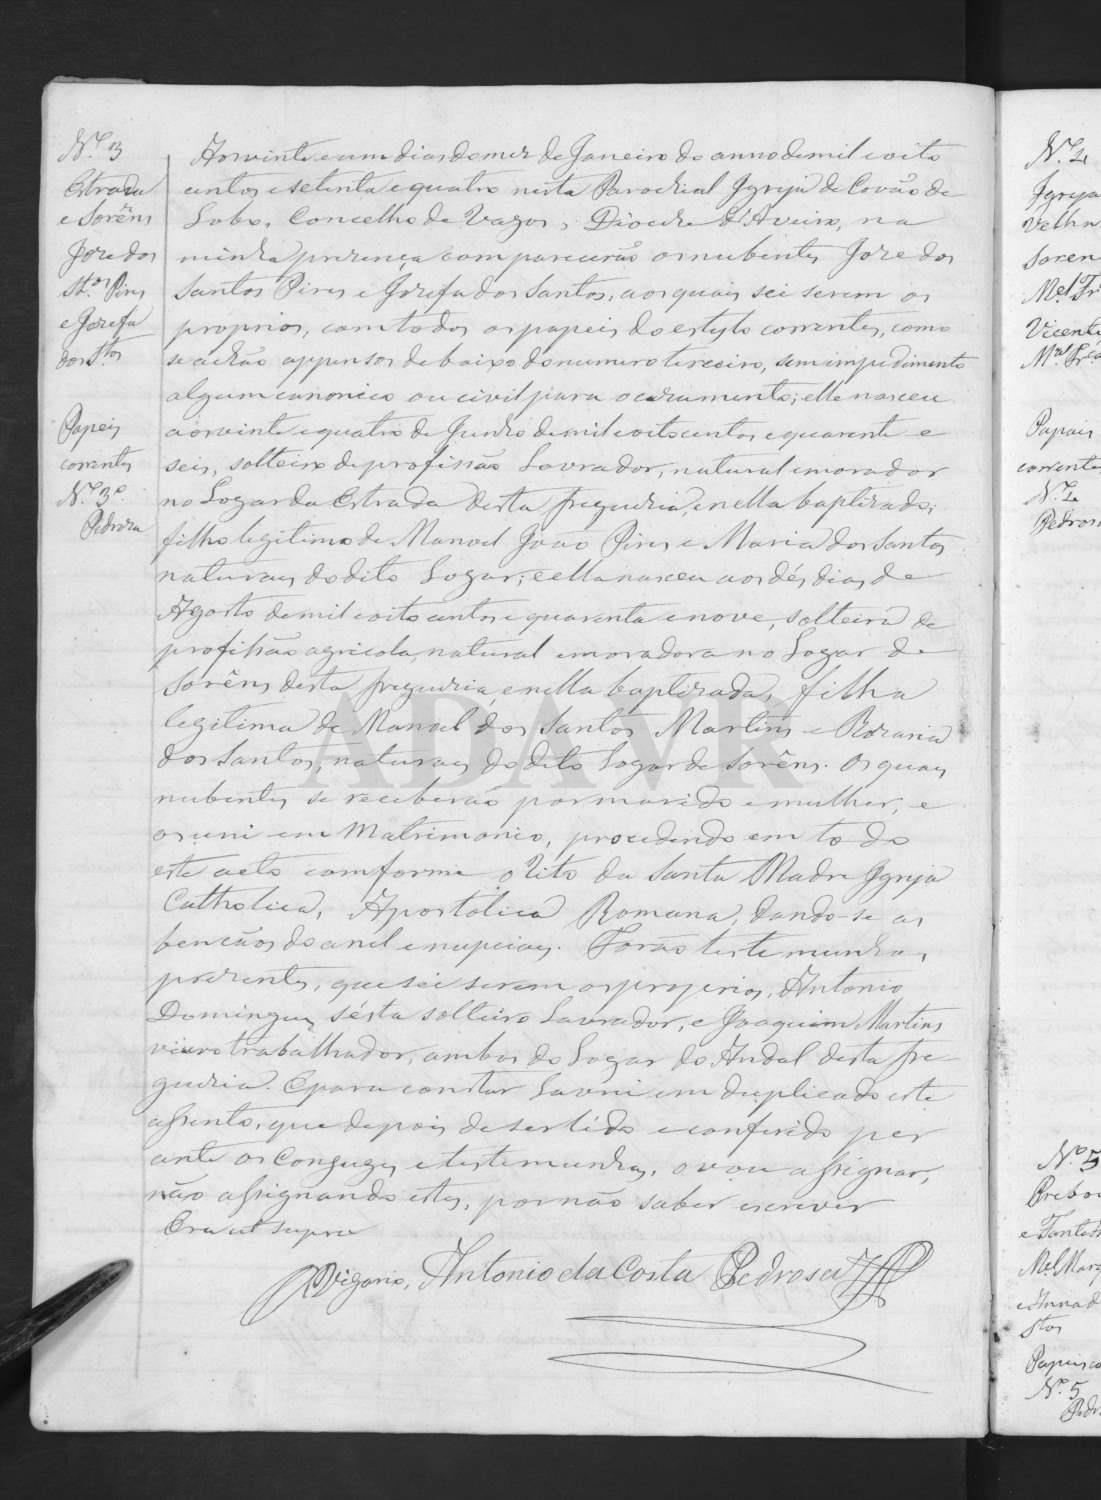 N.º 3
Estrada
e Sorêns
Joze dos
St.os Pires
e Jozefa
dos St.os
Papeis
correntes
N.º 3º
Pedroza
Aos vinte e um dias do mez de Janeiro do anno de mil e oito
centos e setenta e quatro nesta Parochial Igreja de Covão do
Lobo, Concelho de Vagos, Diocese d'Aveiro, na
minha prezença compareceram os nubentes Joze dos
Santos Pires e Jozefa dos Santos, aos quais sei serem os
proprios, com todos os papeis do estylo correntes, como
se achão appensos debaixo do numero terceiro, sem impedimento
algum canonico ou civil para o cazamento; elle nasceu
aos vinte e quatro de Junho de mil e oitocentos e quarenta e
seis, solteiro de profissão Lavrador, natural e morador
no Logar da Estrada desta freguezia, e nella baptizado;
filho legitimo de Manoel João Pires e Maria dos Santos
naturaes do dito Logar; e ella nasceu aos dés dias de
Agosto de mil e oito centos e quarenta e nove, solteira de
profissão agricola, natural e moradora no Logar de
Sorêns desta freguezia, e nella baptizada, filha
legitima de Manoel dos Santos Martins e Rozaria
dos Santos, naturaes do dito Logar de Sorêns. Os quaes
nubentes se receberão por marido e mulher, e
os uni em Matrimonio, procedendo em todo
este acto comforme o Rito da Santa Madre Igreja
Catholica, Apostolica Romana, dando-se as
bençãos do anel e nupciaes. Forão testemunhas
prezentes, que sei serem os proprios, Antonio
Domingues sésta solteiro Lavrador, e Joaquim Martins
viuvo trabalhador, ambos do Logar do Andal desta fre-
guezia. E para constar Lavrei em duplicado este
assento, que depois de ser lido e conferido per
ante os Conjuges e testemunhas, o vou assignar,
não assignando estes, por não saber escrever
Era ut supra
O Vigario, Antonio da Costa Pedrosa
ADAVR
N.º 4
Igreja
Velha
Soren
M.el Fr
Vicente
Papais
correntes
N.º 4
Pedrosa
N.º 5
M.el Marq
e Anna d
Stos
Papeis co
N.º 5
Pedr